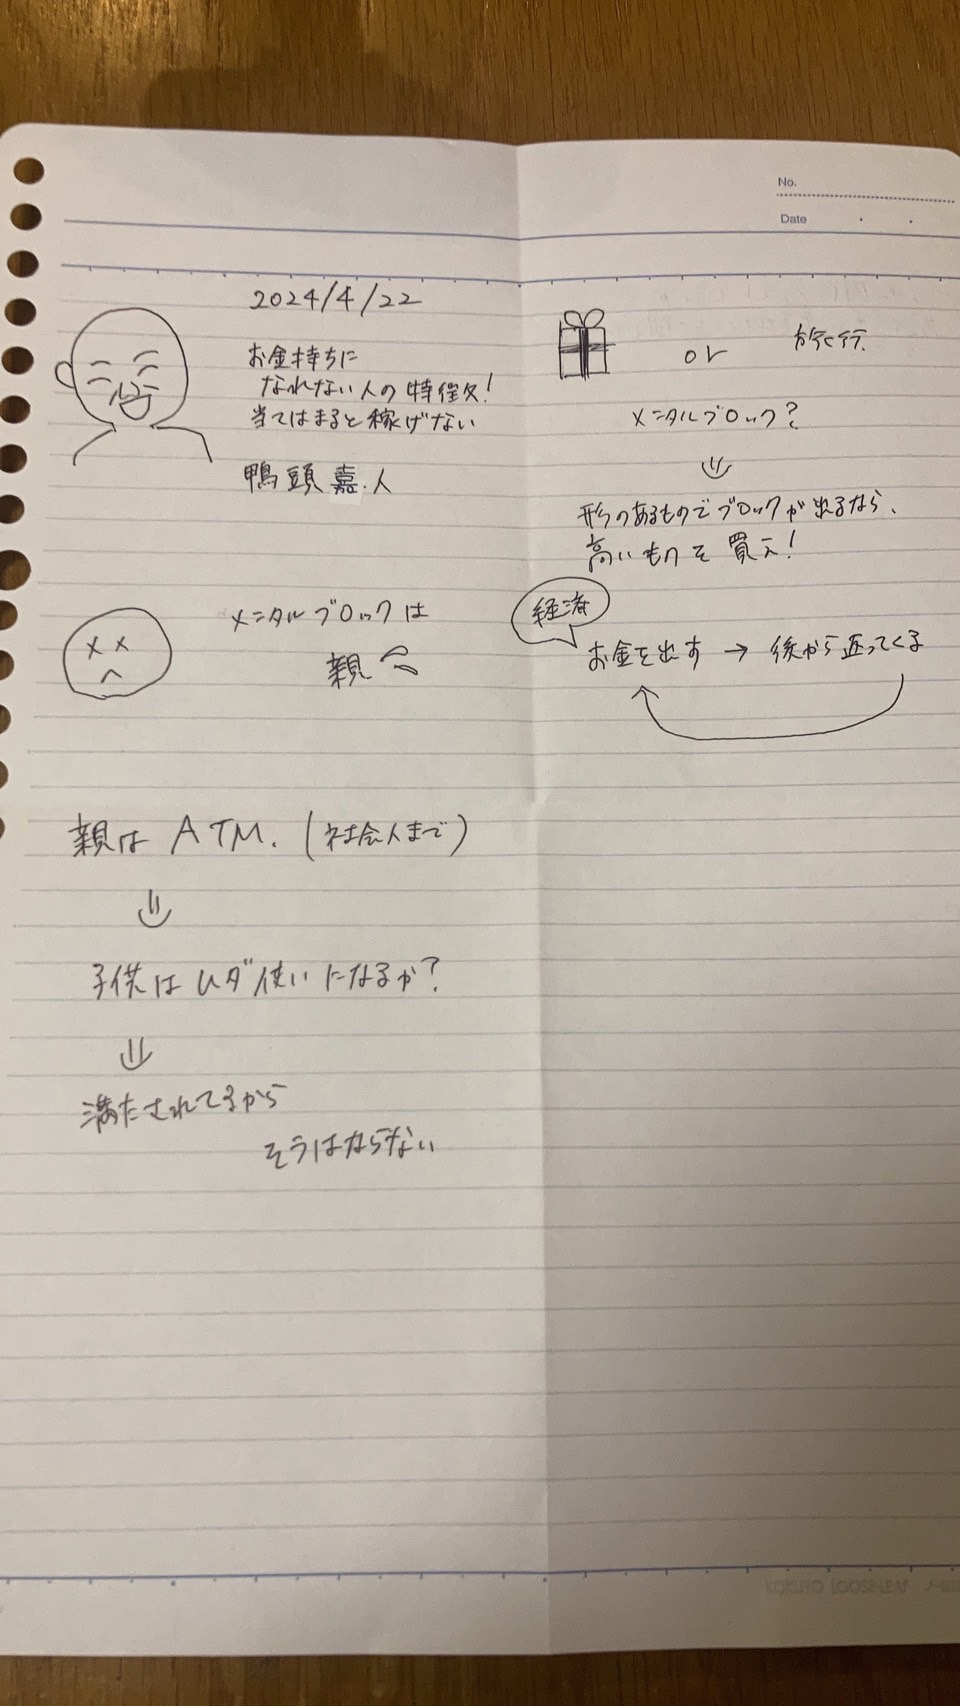 No.
Date
2024/4/22
お金持ちに
なれない人の特徴!
当てはまると稼げない
鴨頭嘉人
メンタルブロックは
親
親は ATM. (社会人まで)
子供はムダ使いになるか?
満たされてるから
そうはならない
or 旅行
メンタルブロック?
形のあるものでブロックが出るなら、
高いものを買え!
経済
お金を出す → 後から返ってくる
KOKUYO LOOSE-LEAF